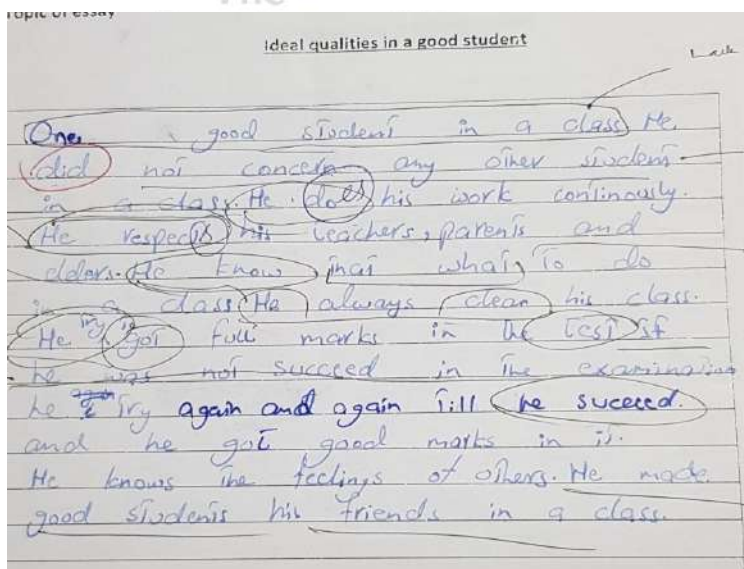 Topic of essay
Ideal qualities in a good student
One good student in a class He
did not concern any other student
in a class. He does his work continously.
He respects his teachers, parents and
elders. He know that what to do
in a class. He always clean his class.
He try to got full marks in the test if
he was not succeed in the examination
he try again and again till he succeed.
and he got good marks in it.
He knows the feelings of others. He made
good students his friends in a class.